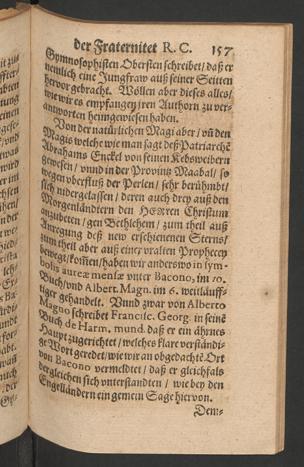 der Fraternitet R. C. 157
Gymnosophisten Obersten schreibet/ daß er
nemlich eine Jungfraw auß seiner Seitten
hervor gebracht. Wöllen aber dieses alles/
wie wir es empfangen/ jren Authorn zu ver-
antworten heimgewiesen haben.
Von der natürlichen Magi aber/ uñ den
Magis welche wie man sagt deß Patriarchẽ
Abrahams Enckel von seinen Kebsweibern
gewesen/ vnnd in der Provintz Maabal/ so
wegen vberfluß der Perlen/ sehr berühmbt/
sich nidergelassen/ deren auch drey auß den
Morgenländern den HERren Christum
anzubeten/ gen Bethlehem/ zum theil auß
Anregung deß new erschienenen Sterns/
zum theil aber auß einer vralten Prophecey
bewegt/ kommen/ haben wir anderswo in sym-
bolis aureæ mensæ vnter Bacono, im 10.
Buch/ vnd Albert. Magn. im 6. weitläuff-
tiger gehandelt. Vnnd zwar von Alberto
Magno schreibet Francisc. Georg. in seinẽ
Buch de Harm. mund. daß er ein ährnes
Haupt zugerichtet/ welches klare verständi-
ge Wort geredet/ wie wir an obgedachtẽ Ort
von Bacono vermeldtet/ daß er gleichfals
dergleichen sich vnterstandten/ wie bey den
Engelländern ein gemein Sage hiervon.
Dem-